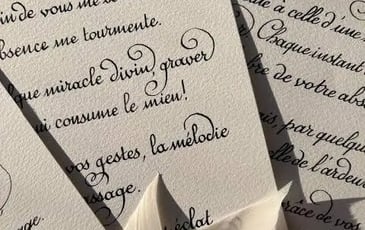 in de vous me
absence me tourmente.
que miracle divin, graver
ui consume le mieu!
vos gestes, la mélodie
ssage.
éclat
à celle d'une
Chaque instant,
de votre abs
is, par quelque
elle de l'ardeu
râce de vos
age.